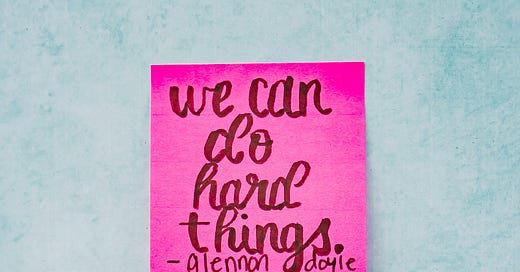 we can
do
hard
things.
- glennon doyle